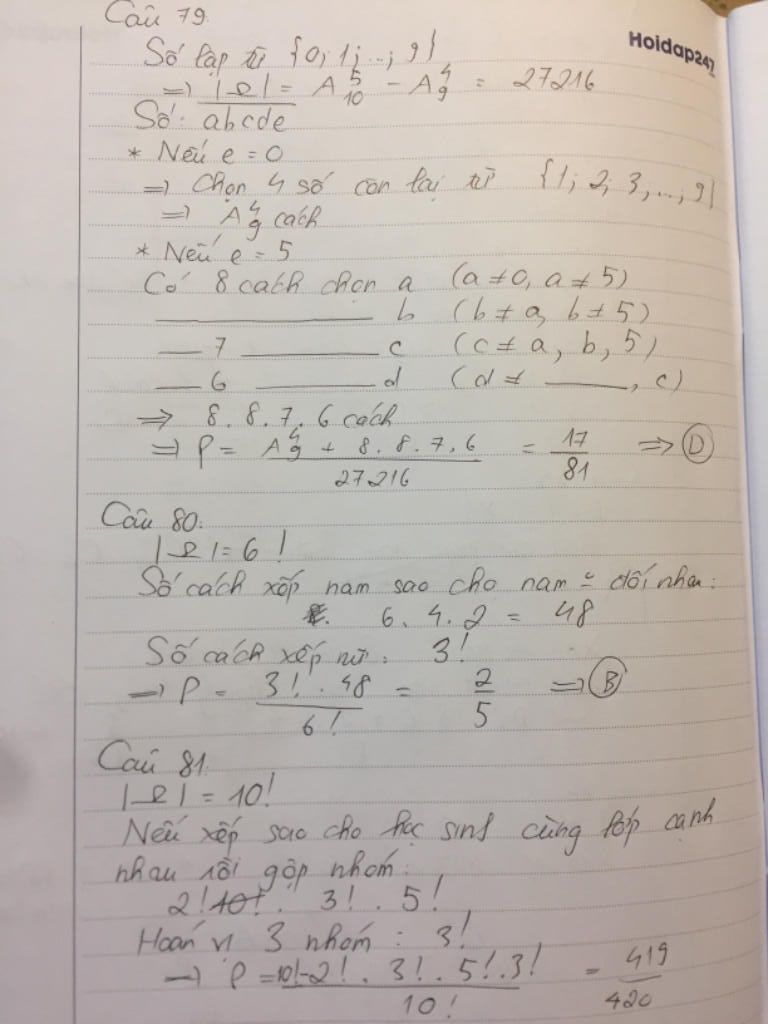 Câu 79.
Hoidap247
Số lập từ {0; 1; ...; 9}
=> |Ω| = A⁵₁₀ - A⁴₉ = 27216
Số: abcde
* Nếu e = 0
=> Chọn 4 số còn lại từ {1; 2; 3, ..., 9}
=> A⁴₉ cách
* Nếu e = 5
Có 8 cách chọn a (a ≠ 0, a ≠ 5)
_____ b (b ≠ a, b ≠ 5)
__ 7 _____ c (c ≠ a, b, 5)
__ 6 _____ d (d ≠ ____, c)
=> 8. 8. 7. 6 cách
=> P = (A⁴₉ + 8. 8. 7. 6) / 27216 = 17/81 => D
Câu 80:
|Ω| = 6!
Số cách xếp nam sao cho nam đối nhau:
6. 4. 2 = 48
Số cách xếp nữ: 3!
=> P = (3! . 48) / 6! = 2/5 => B
Câu 81.
|Ω| = 10!
Nếu xếp sao cho học sinh cùng lớp cạnh
nhau rồi gộp nhóm:
2! 10! . 3! . 5!
Hoán vị 3 nhóm: 3!
=> P = (10! - 2! . 3! . 5! . 3!) / 10! = 419/420